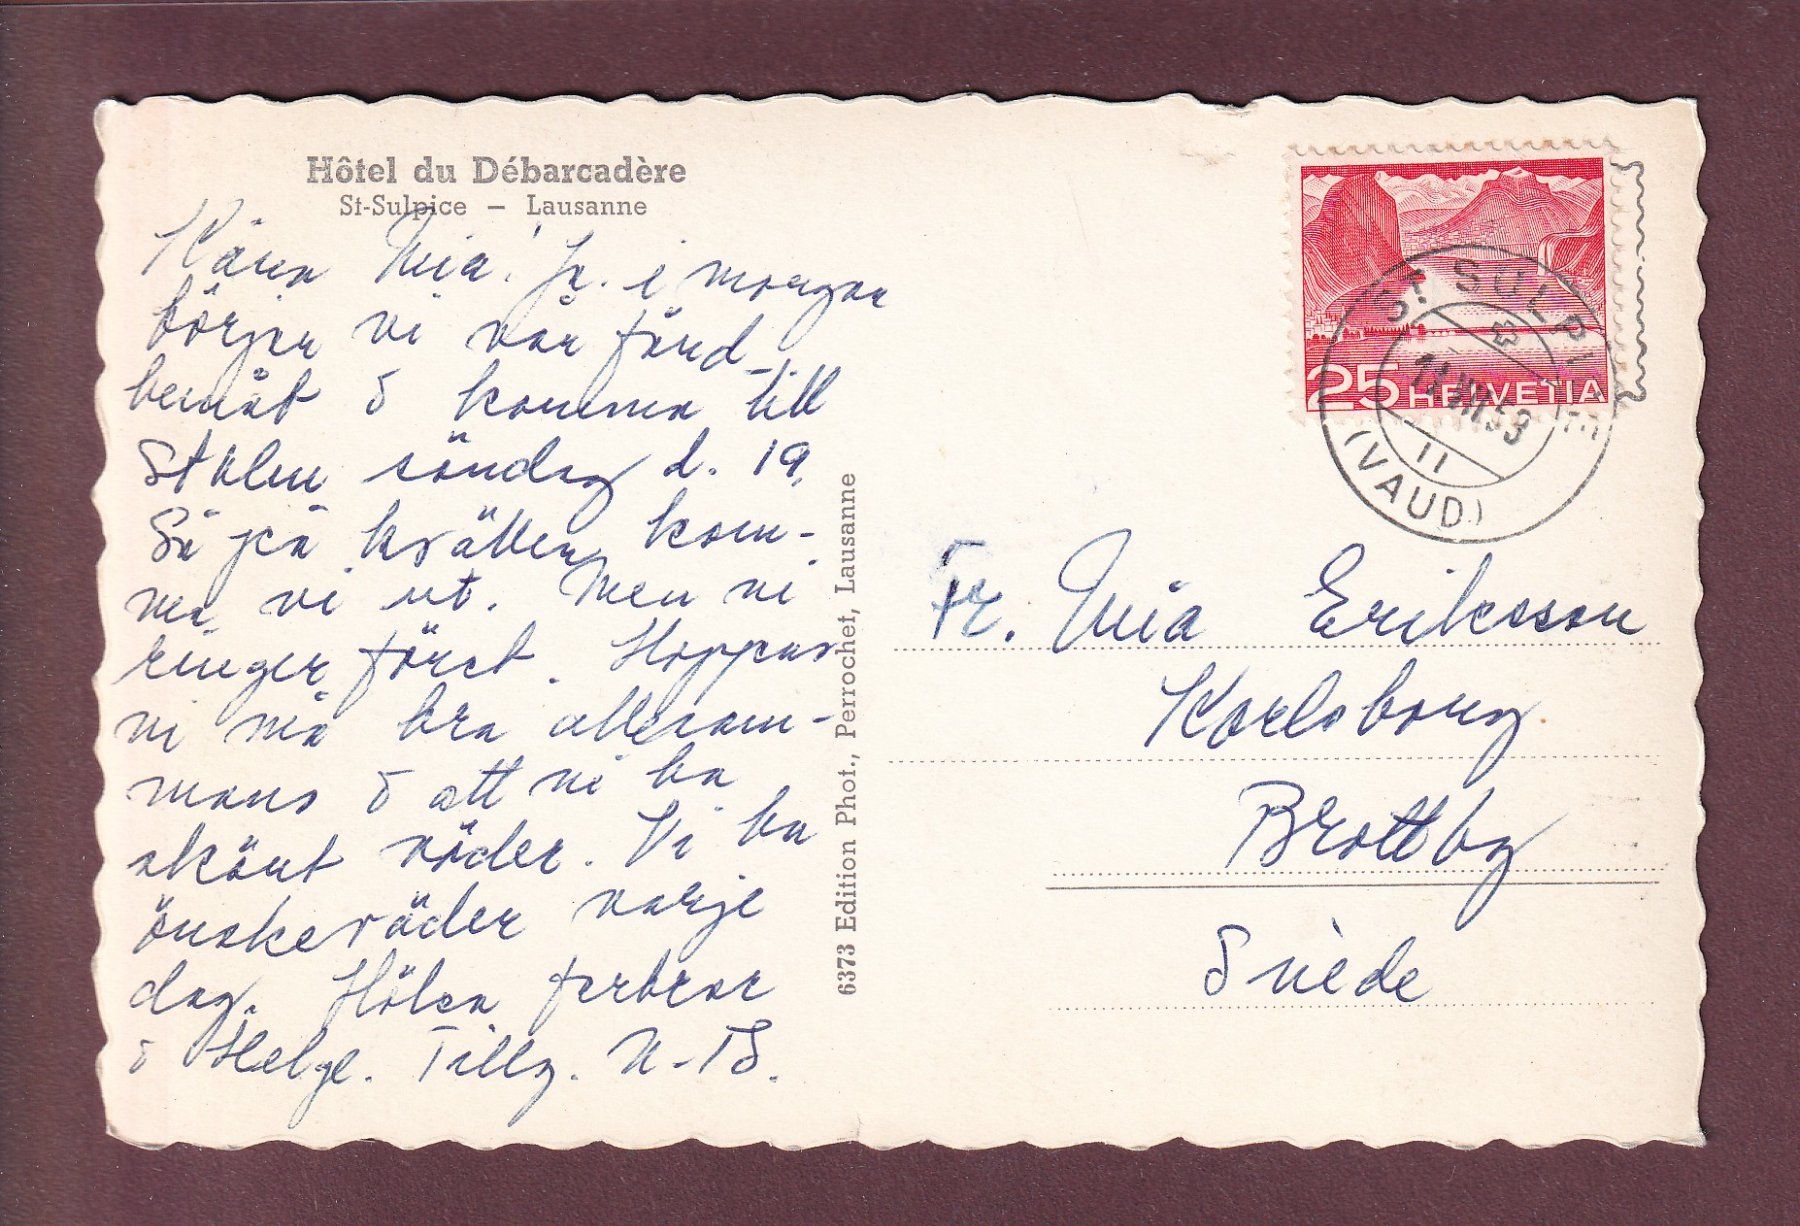 Hôtel du Débarcadère
St-Sulpice – Lausanne
Kära Mia! Ja. i morgon
börjar vi vår färd
hemåt o komma till
Sthlm söndag d. 19.
Så på kvällen kom-
ma vi ut. Men vi
ringer först. Hoppas
ni må bra allesam-
mans o att ni ha
skönt väder. Vi ha
önskeväder varje
dag. Hälsa farbror
o Helge. Tillg. N-B.
6373 Edition Phot., Perrochet, Lausanne
25 HELVETIA
ST. SULPICE
11
(VAUD)
Fr. Mia Eriksson
Karlsborg
Brottby
Suède